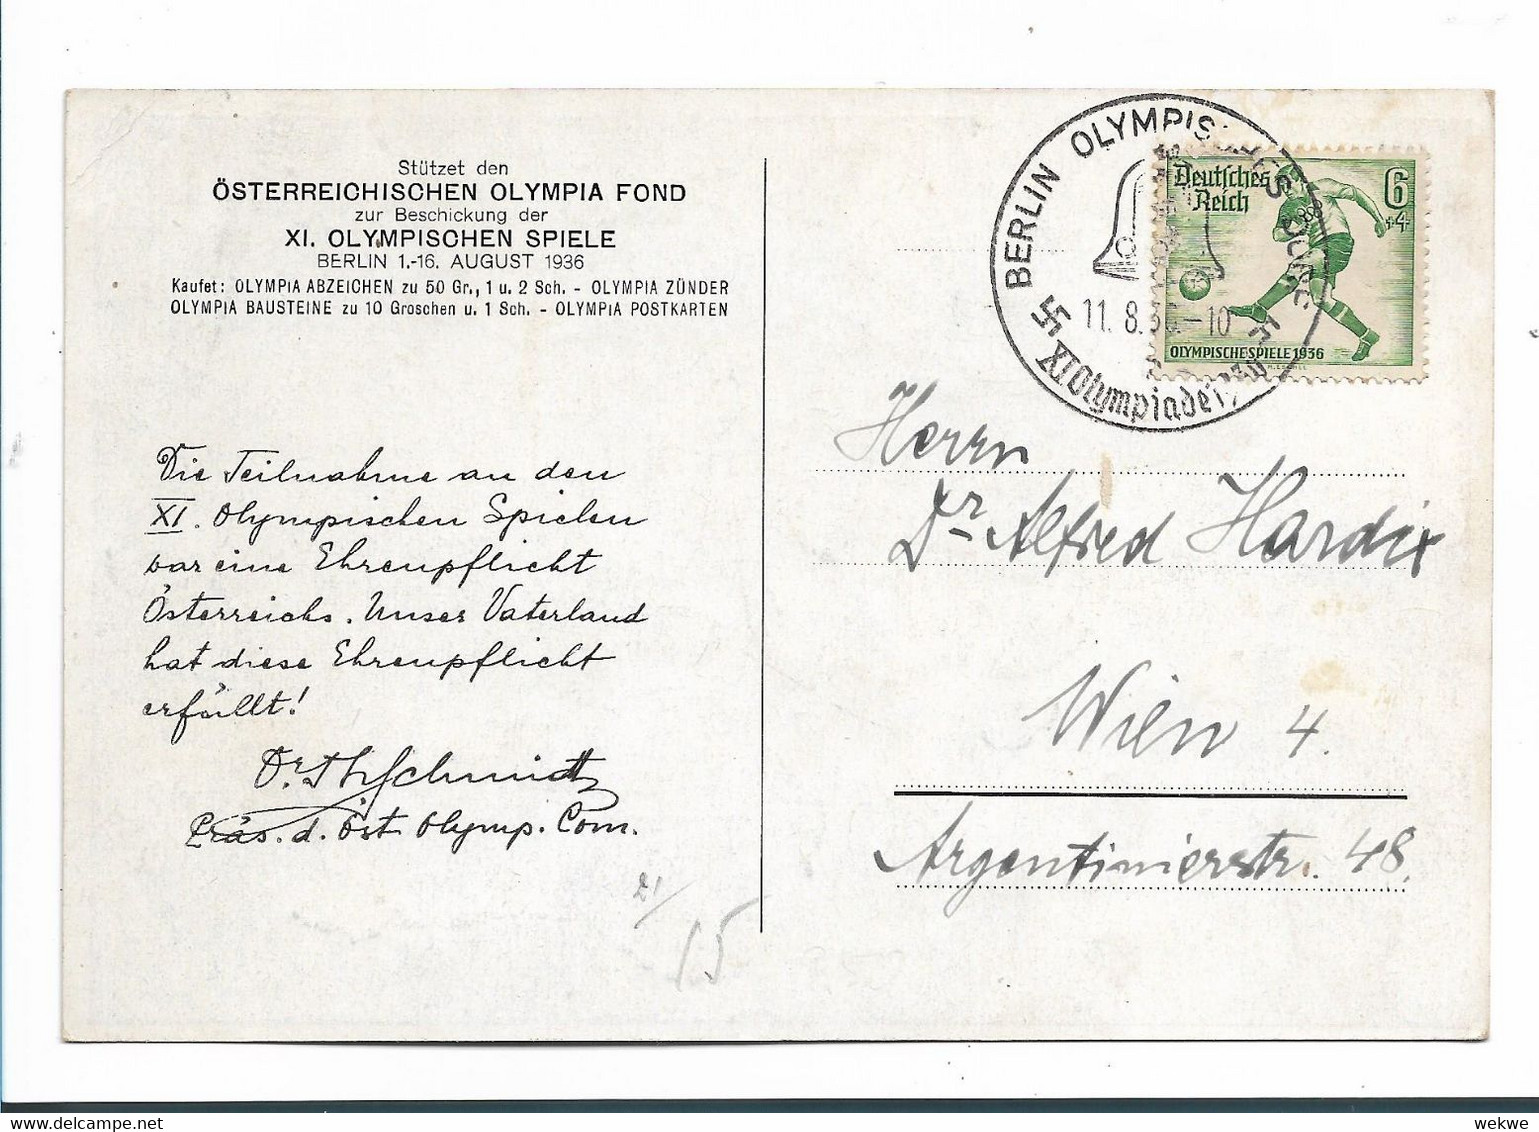 Stützet den
ÖSTERREICHISCHEN OLYMPIA FOND
zur Beschickung der
XI. OLYMPISCHEN SPIELE
BERLIN 1.-16. AUGUST 1936
Kaufet: OLYMPIA ABZEICHEN zu 50 Gr., 1 u. 2 Sch. - OLYMPIA ZÜNDER
OLYMPIA BAUSTEINE zu 10 Groschen u. 1 Sch. - OLYMPIA POSTKARTEN
Die Teilnahme an den
XI. Olympischen Spielen
war eine Ehrenpflicht
Österreichs. Unser Vaterland
hat diese Ehrenpflicht
erfüllt!
Dr. Th. Schmidt
Präs. d. Öst. Olymp. Com.
21/
15
BERLIN OLYMPISCHES DORF
11.8.36-10
XI Olympiade
Deutsches
Reich
6
+4
OLYMPISCHE SPIELE 1936
Herrn
Dr. Alfred Hardix
Wien 4.
Argentinierstr. 48.
wekwe